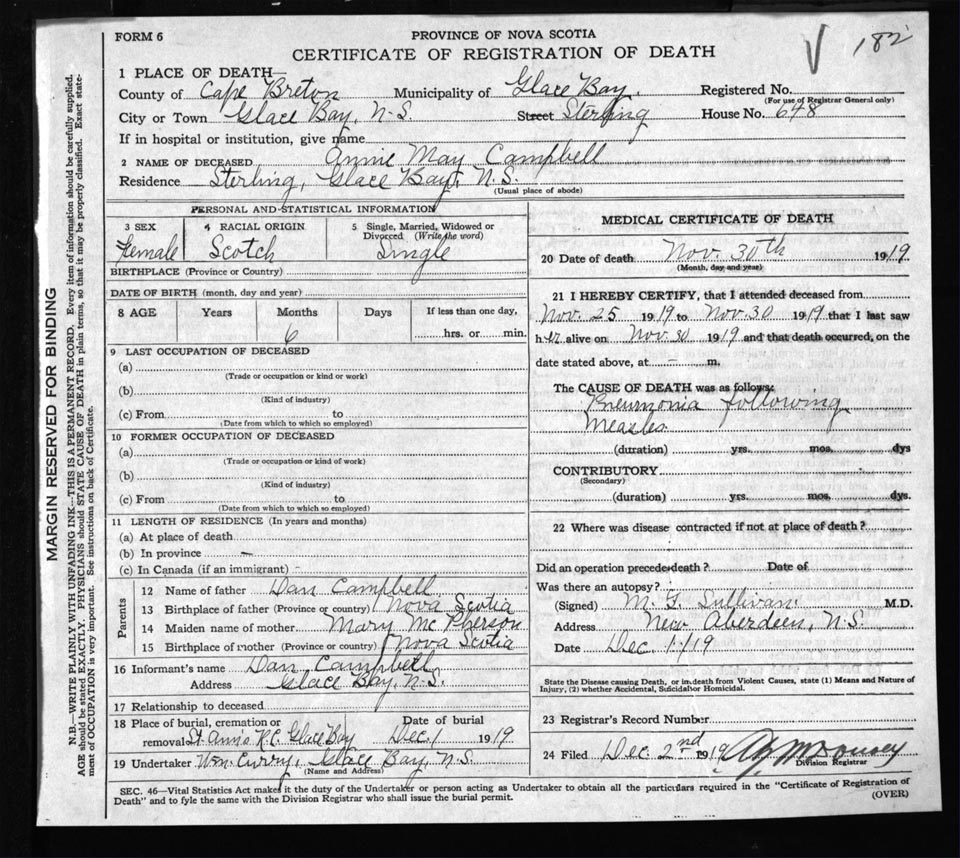 FORM 6
PROVINCE OF NOVA SCOTIA
CERTIFICATE OF REGISTRATION OF DEATH
182
1 PLACE OF DEATH—
County of Cape Breton Municipality of Glace Bay. Registered No.
(For use of Registrar General only)
City or Town Glace Bay, N.S. Street Sterling House No. 648
If in hospital or institution, give name
2 NAME OF DECEASED Annie May Campbell
Residence Sterling, Glace Bay, N.S.
(Usual place of abode)
PERSONAL AND STATISTICAL INFORMATION
3 SEX 4 RACIAL ORIGIN 5 Single, Married, Widowed or Divorced (Write the word)
Female Scotch Single
BIRTHPLACE (Province or Country)
DATE OF BIRTH (month, day and year)
8 AGE Years Months Days If less than one day,
6 hrs. or min.
9 LAST OCCUPATION OF DECEASED
(a)
(Trade or occupation or kind or work)
(b)
(Kind of industry)
(c) From to
(Date from which to which so employed)
10 FORMER OCCUPATION OF DECEASED
(a)
(Trade or occupation or kind of work)
(b)
(Kind of industry)
(c) From to
(Date from which to which so employed)
11 LENGTH OF RESIDENCE (In years and months)
(a) At place of death
(b) In province —
(c) In Canada (if an immigrant) -
Parents
12 Name of father Dan Campbell
13 Birthplace of father (Province or country) Nova Scotia
14 Maiden name of mother Mary McPherson
15 Birthplace of mother (Province or country) Nova Scotia
16 Informant's name Dan Campbell
Address Glace Bay, N.S.
17 Relationship to deceased
18 Place of burial, cremation or Date of burial
removal St. Ann's R.C. Glace Bay Dec. 1 1919
19 Undertaker Wm. Curry, Glace Bay, N.S.
(Name and Address)
MEDICAL CERTIFICATE OF DEATH
20 Date of death Nov. 30th 1919
(Month, day and year)
21 I HEREBY CERTIFY, that I attended deceased from
Nov. 25 1919 to Nov. 30 1919 that I last saw
her alive on Nov. 30 1919 and that death occurred, on the
date stated above, at - m.
The CAUSE OF DEATH was as follows:
Pneumonia following
Measles
(duration) yrs. mos. dys
CONTRIBUTORY
(Secondary)
(duration) yrs. mos. dys.
22 Where was disease contracted if not at place of death?
Did an operation precede death? Date of
Was there an autopsy?
(Signed) M. F. Sullivan M.D.
Address New Aberdeen, N.S.
Date Dec. 1/19
State the Disease causing Death, or in death from Violent Causes, state (1) Means and Nature of
Injury, (2) whether Accidental, Suicidal or Homicidal.
23 Registrar's Record Number
24 Filed Dec. 2nd 1919
Division Registrar
SEC. 46—Vital Statistics Act makes it the duty of the Undertaker or person acting as Undertaker to obtain all the particulars required in the "Certificate of Registration of
Death" and to fyle the same with the Division Registrar who shall issue the burial permit. (OVER)
MARGIN RESERVED FOR BINDING
N.B.—WRITE PLAINLY WITH UNFADING INK—THIS IS A PERMANENT RECORD. Every item of information should be carefully supplied.
AGE should be stated EXACTLY. PHYSICIANS should STATE CAUSE OF DEATH in plain terms, so that it may be properly classified. Exact state-
ment of OCCUPATION is very important. See instructions on back of Certificate.